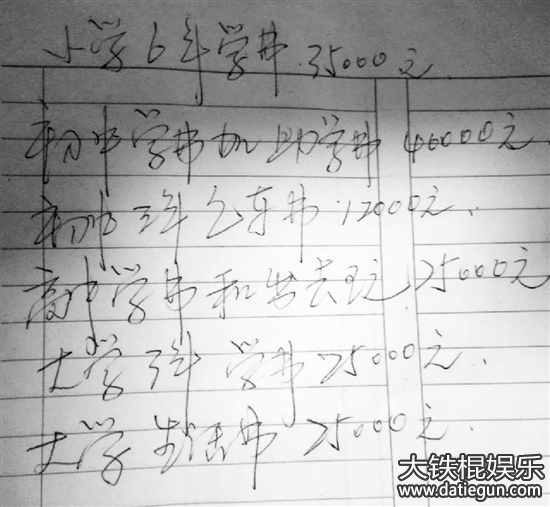 小学6年学费.35000元
初中学费加助学费46000元
初中三年包车费.12000元.
高中学费和出去玩25000元
大学3年学费75000元.
大学生活费75000元.
大铁棍娱乐
www.datiegun.com